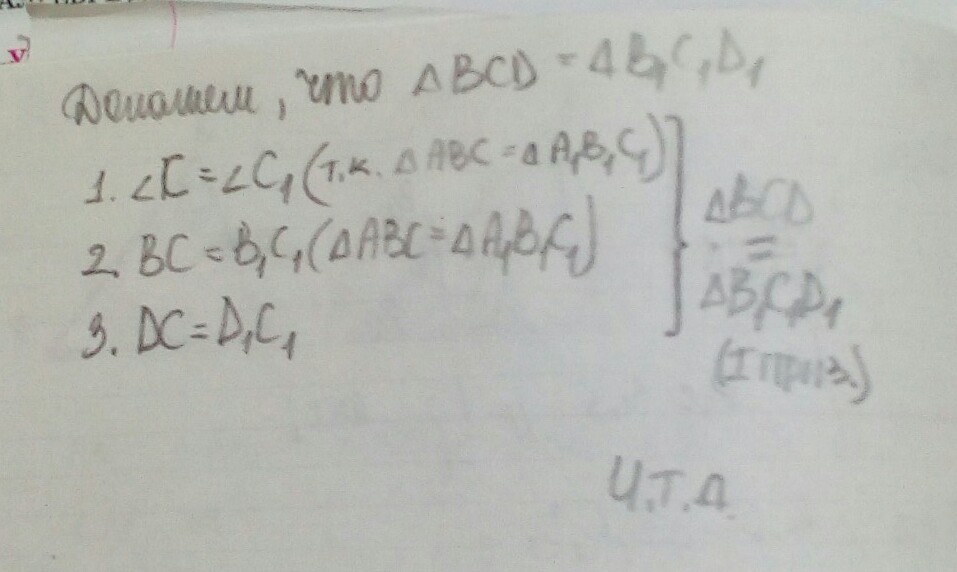 v)
Докажем, что ΔBCD = ΔB₁C₁D₁
1. ∠C = ∠C₁ (т.к. ΔABC = ΔA₁B₁C₁)
2. BC = B₁C₁ (ΔABC = ΔA₁B₁C₁)
3. DC = D₁C₁
ΔBCD
=
ΔB₁C₁D₁
(I призн.)
Ч.Т.Д.